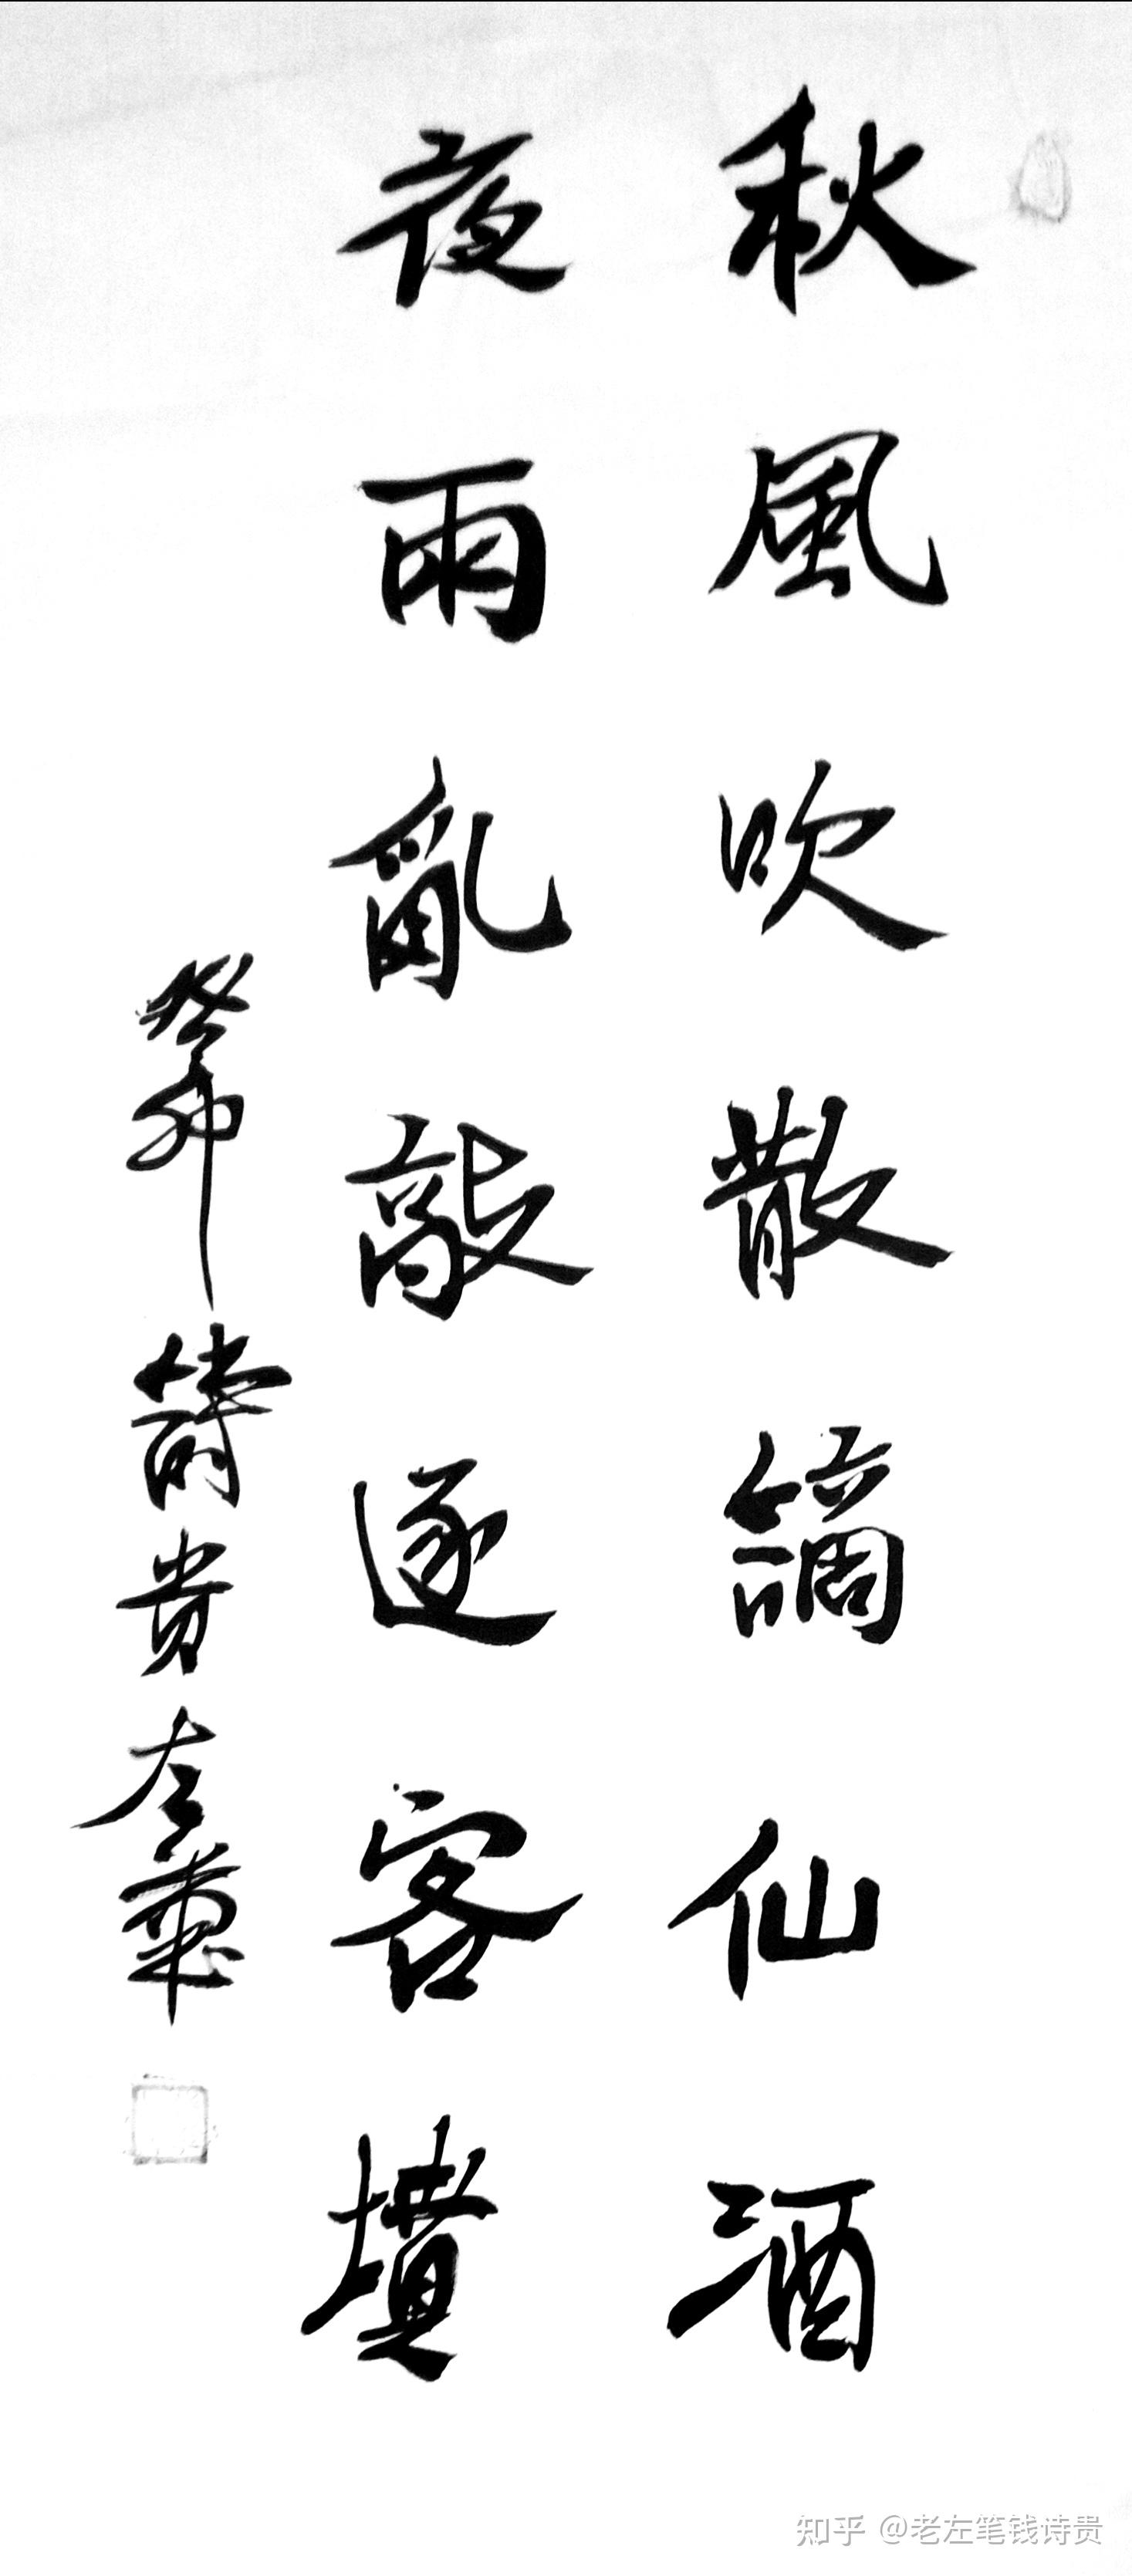 秋風吹散謫仙酒
夜雨亂敲逐客墳
癸卯蒔貴左
知乎 @老左笔钱诗贵